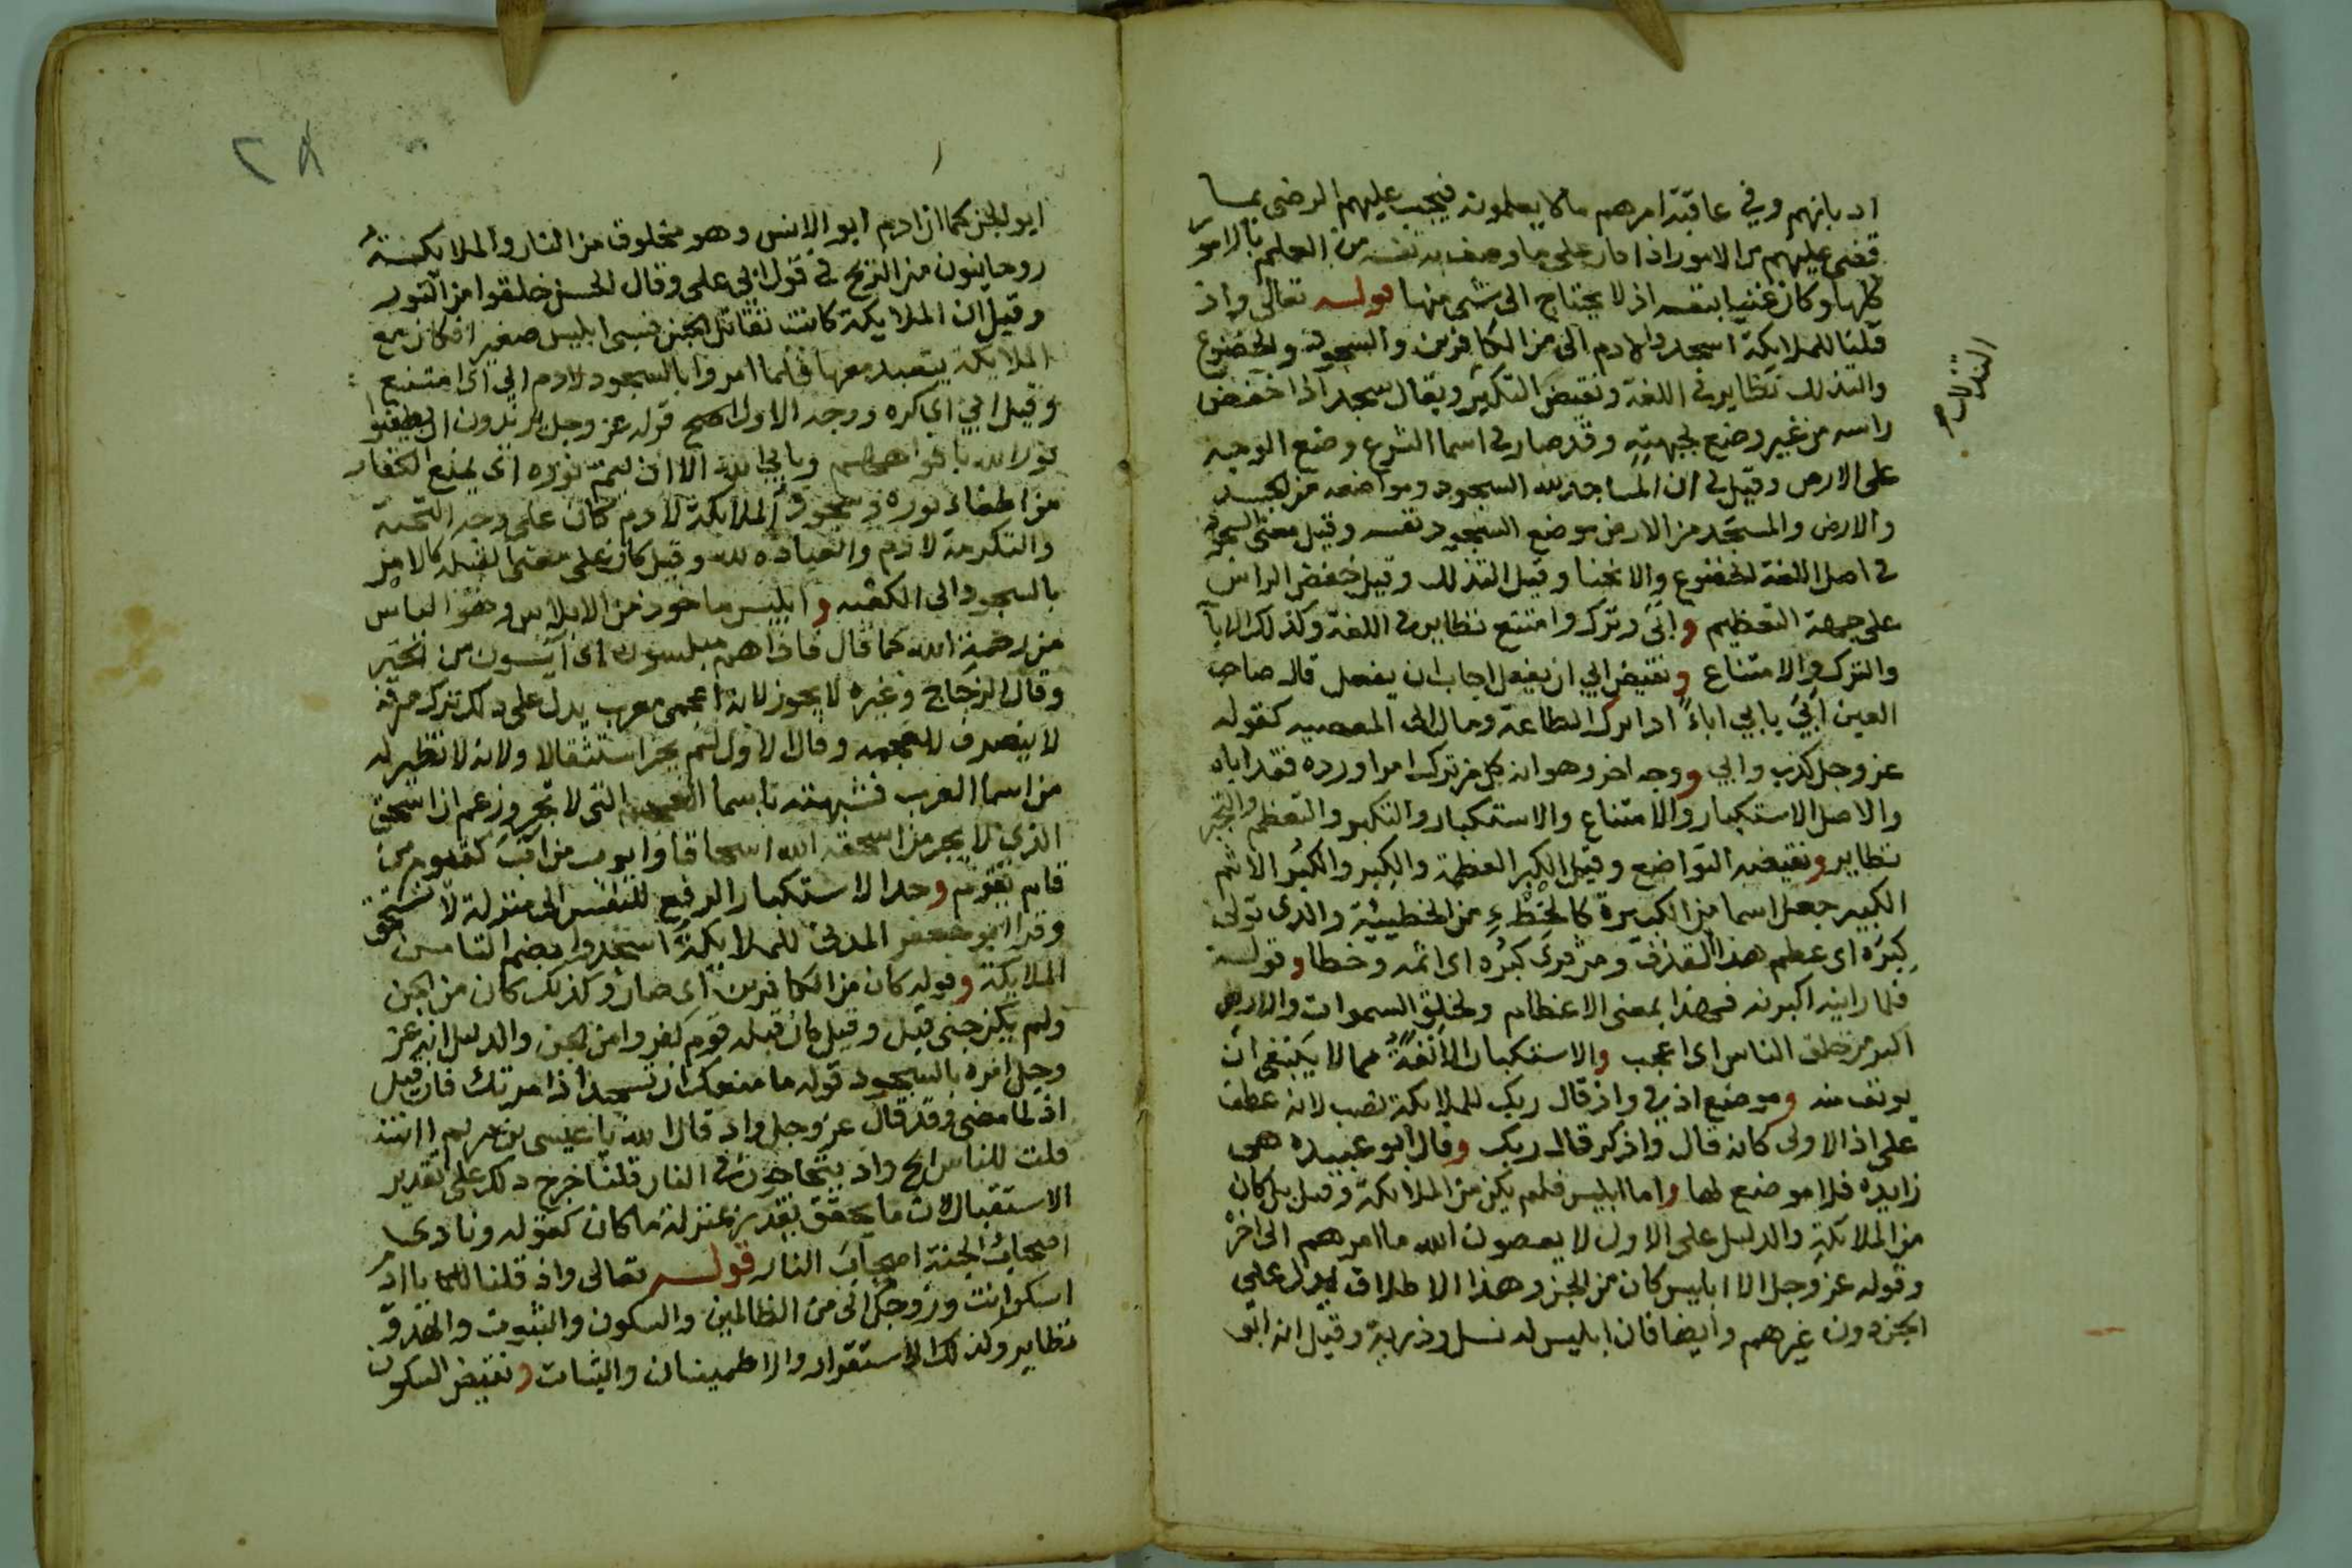 اد بانهم وفي عاقبة امرهم مالا يعلمون فيجب عليهم الرضى بما
قضى عليهم من الامور اذا كان على ما وصف به نفسه من العلم بالامور
كلها وكان غنيا بنفسه اذ لا يحتاج الى شى منها قولـه تعالى واذ
قلنا للملايكة اسجدوا لادم الى من الكافرين والسجود والخضوع
والتذلل نظاير في اللغة ونقيض التكبر ويقال سجد اذا خفض
راسه من غير وضع لجبهته وقد صار في اسما الشرع وضع الوجه
على الارض وقيل في ان المساجد لله السجود ومواضعه من الجسد
والارض والمسجد من الارض موضع السجود نفسه وقيل معنى السجود
في اصل اللغة الخضوع والانحنا وقيل التذلل وقيل خفض الراس
على جهة التعظيم وابى وترك وامتنع نظاير في اللغة وكذلك الابآ
والترك والامتناع ونقيض ابي ان يفعل اجاب ان يفعل قال صاحب
العين ابي يابي اباءً اذا ترك الطاعة ومال الى المعصيه كقوله
عز وجل كذب وابي ووجه اخر وهو ان كل من ترك امرا ورده فقد اباه
والاصل الاستكبار والامتناع والاستكبار والتكبر والتعظم والتجبر
نظاير ونقيضه التواضع وقيل الكبر العظمة والكِبر والكُبر الاثم
الكبير جعل اسما من الكبيرة كالخطْءِ من الخطيئة والذى تولى
كِبرَه اى عظم هذا القذف ومن قرى كُبره اى اثمه وخطا وقولـه
فلما راينه اكبرنه فهذا بمعنى الاعظام ولخلق السموات والارض
اكبر من خلق الناس اى اعجب والاستكبار الانفةُ مما لا ينبغى ان
يونف منه وموضع اذ في واذ قال ربك للملايكة نصب لانه عطف
على اذ الاولى كانه قال واذكر قال ربك وقال ابو عبيده هى
زايده فلا موضع لها واما ابليس فلم يكن من الملايكة وقيل بل كان
من الملايكة والدليل على الاول لا يعصون الله ما امرهم الى اخر
وقوله عز وجل الا ابليس كان من الجن وهذا الاطلاق يدل على
الجن دون غيرهم وايضا فان ابليس له نسل وذرية وقيل انه ابو
ابو الجن كما ان ادم ابو الانس وهو مخلوق من النار والملايكـة
روحانيون من الريح في قول ابي على وقال الحسن خلقوا من النور
وقيل ان الملايكة كانت تقاتل الجن فسبى ابليس صغيرا فكان مع
الملايكة يتعبد معها فلما امروا بالسجود لادم ابي اى امتنع
وقيل ابي اى كره ووجه الاول اصح قوله عز وجل يريدون ان يطفئوا
نور الله بافواههم ويابي الله الا ان يتم نوره اى يمنع الكفار
من اطفاء نوره وسجود الملايكة لادم كان على وجه التحية
والتكرمة لادم والعباده لله وقيل كان على معنى القبله كالامر
بالسجود الى الكعبه وابليس ماخوذ من الابلاس وهو الياس
من رحمة الله كما قال فاذا هم مبلسون اى آيسون من الخير
وقال الزجاج وغيره لا يجوز لانه اعجمى معرب يدل على ذلك ترك صرفه
لا ينصرف للعجمه وقال الاول لم يجر استثقالا ولانه لا نظير له
من اسما العرب فشبهته باسما العجم التى لا تجر وزعم ان اسحق
الذي لا يجر من اسحقه الله اسحاقا وايوب من آب كقيوم من
قام يقوم وحد الاستكبار الرفع للنفس الى منزلة لا تستحق
وقرا ابو جعفر المدنى للملايكةُ اسجدوا بضم التا من
الملايكة وقوله كان من الكافرين اى صار وكذلك كان من الجن
ولم يكن جنى قبل وقيل كان قبله قوم كفروا من الجن والدليل انه عز
وجل امره بالسجود قوله ما منعك ان تسجد اذ امرتك فان قيل
اذ لما مضى وقد قال عز وجل واذ قال الله يا عيسى بن مريم اانت
قلت للناس الخ واذ يتحاجون في النار قلنا خرج ذلك على تقدير
الاستقبال لان ما يحقق بتقديره بمنزلة ما كان كقوله ونادى
اصحاب الجنة اصحاب النار قولـه تعالى واذ قلنا يا ادم
اسكن انت وزوجك الى من الظالمين والسكون والثبوت والهدو
نظاير وكذلك الاستقرار والاطمينان والثبات ونقيض السكون